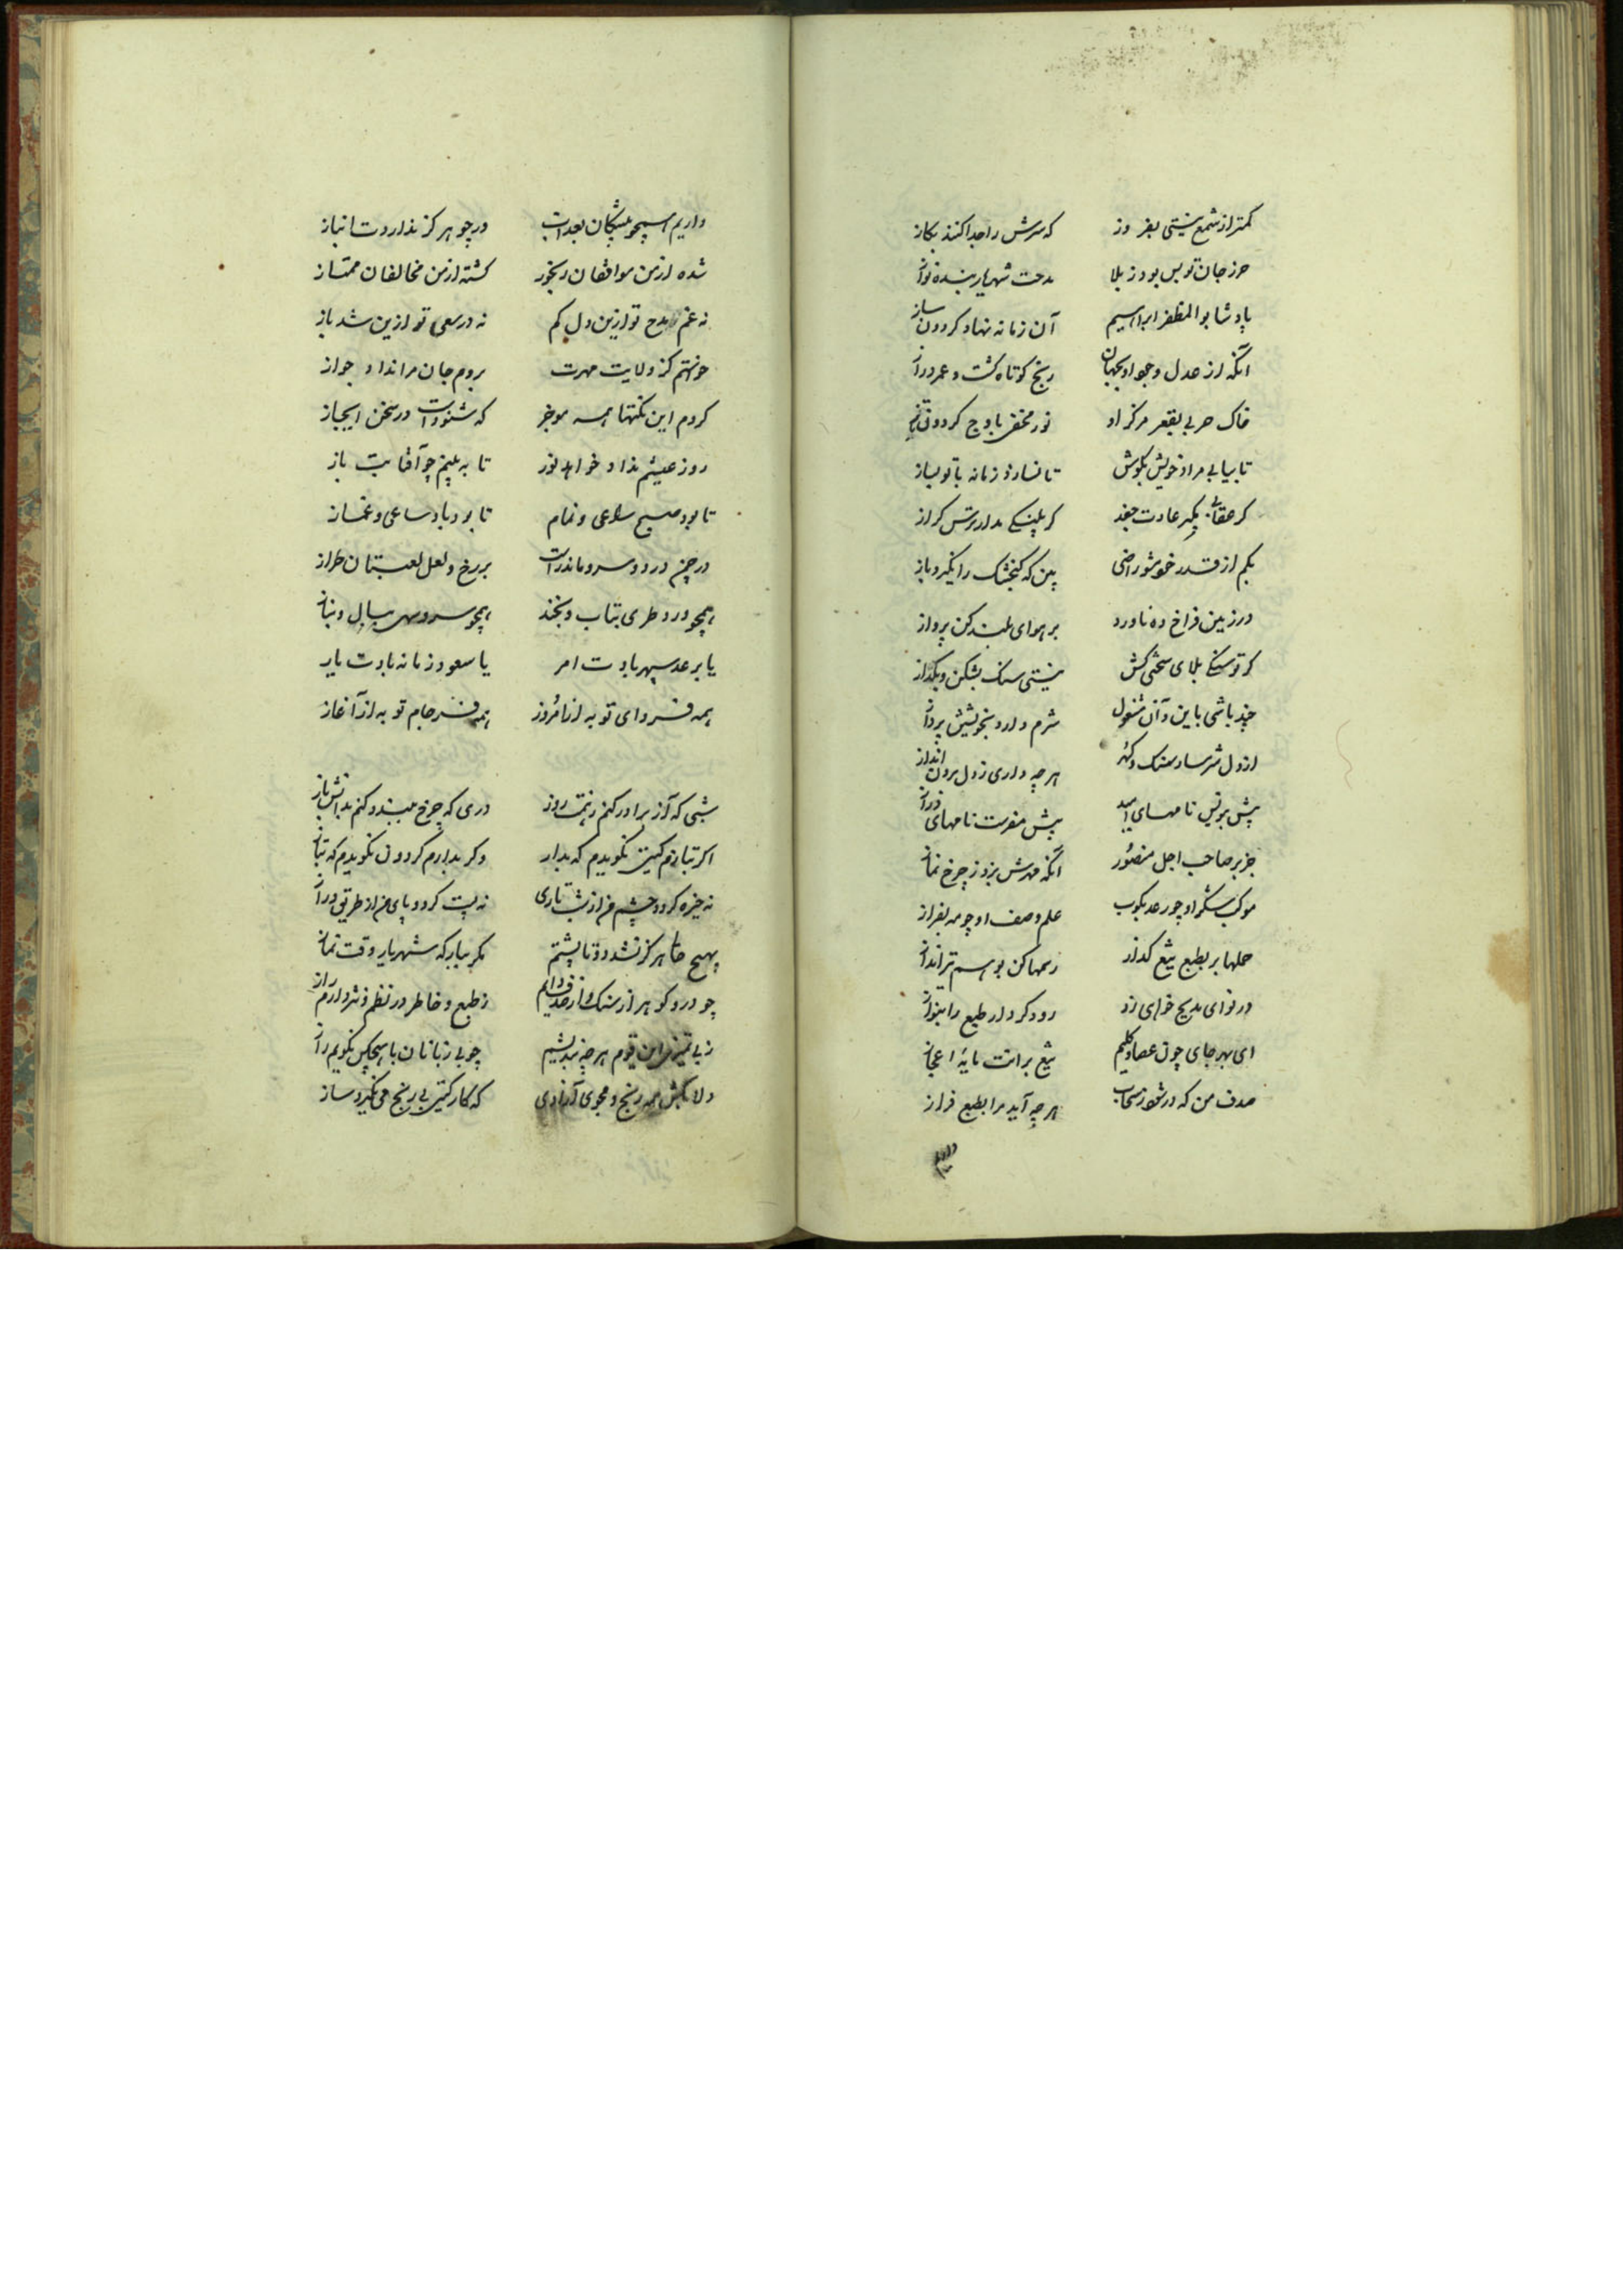 کمتر از شمع نیستی بفروز که سرش را جدا کنند بکاز
حرز جان تو بس بود ز بلا مدحت شهریار بنده نواز
پادشا بوالمظفر ابراهیم آن زمانه نهاد کردون ساز
آنکه از عدل و جود او بجهان رنج کوتاه کشت و عمر دراز
خاک بقعر مرکز او نور باوج کردون
تا بیابی مراد خویش بکوش تا نسازد زمانه با تو بساز
کر عقابی مکیر عادت جغد کر پلنکی مدار کراز
بکم از قدر خود مشو راضی بین که کنجشک را نکیرد باز
در زمین فراخ ده ناورد بر هوای بلند کن پرواز
کر تو سنکی بلای سختی کش نیستی سنک بشکن و بکداز
چند باشی باین و آن مشغول شرم دار و بخویشتن پرداز
از دل هر چه داری ز دل برون انداز
پیش نامهای پیش نامهای دراز
جز بر صاحب اجل منصور آنکه چرخ نماز
موکب شکر او چو رعد بکوب علم وصف او چو مه بفراز
حلها بر بطبع تیغ کذار
در نوای مدیح خواهی زد رود کردار طبع را بنواز
ای بهر جای چون عصای کلیم تیغ برانت مایهٔ اعجاز
صدف من که در شود ز سحاب هر چه آید مرا بطبع فراز
داریم همچو بیدلت در چو هرکز ندارد انباز
شده از من موافقان رنجور کشته از من مخالفان ممتاز
نه غم مدح تو ازین دل کم نه در سعی تو ازین شد باز
خواستم کز ولایت مهرت بروم جان مرا نداد جواز
کردم این نکتها همه موجز که شنوداست در سخن ایجاز
روز عیشم نداد خواهد نور تا به بینم چو آفتابت باز
تا بود صبح ساعی و نمام تا بود باد ساعی و غماز
در چمن ورد و سرو ماندست بر رخ و لعل لعبتان طراز
همچو ورد طری بتاب و بخند همچو سرو سهی ببال و بناز
یابر عدسپهر بادت امر یا سعود زمانه بادت یار
همه فردای تو به از امروز همه فرجام تو به از آغاز
شبی که آز برآورد کنم بهمت روز دری که چرخ ببندد کنم بدانش باز
اکر بتازم کیتی نکویدم که بدار وکر بدارم کردون نکویدم که بتاز
نه خیره کردد چشم من از شب تاری نه پست کردد پای من از طریق دراز
بهیچ هرکز نشد دوتا پشتم مکر ببارکه شهریار وقت نماز
چو در و کوهر از سنک و از صدف دایم ز طبع و خاطر در نظم و نثر دارم راز
ز بی تمیزی این قوم هر چه بندیشم چو بی زبانان با هیچکس نکویم راز
دلا بکش همه رنج و مجوی آزادی که کار کیتی بی رنج می نکیرد ساز